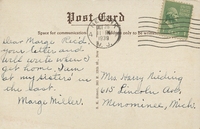 Post Card
Space for communication
Dear Marge - Rec'd
your letter and
will write when I
get home. Time
at my sisters' is
the best.
Marge Miller.
Mrs Harry Kliding
615 Lincoln Ave.
Menominee, Mich.